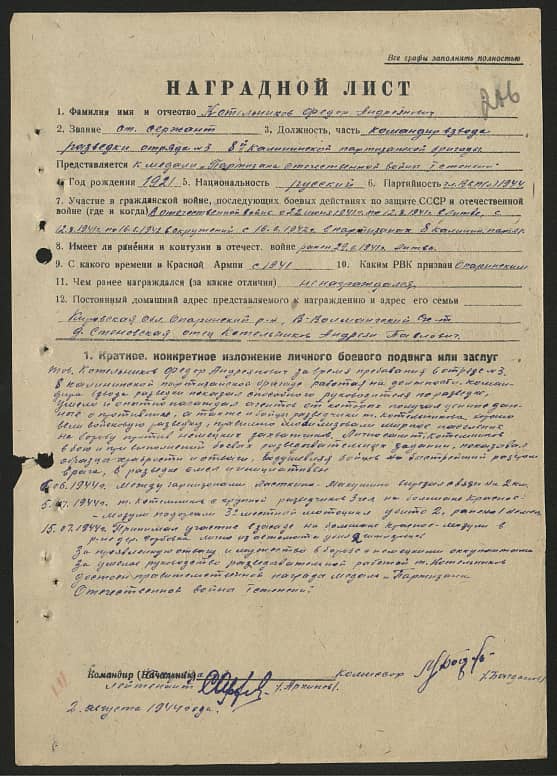 Все графы заполнять полностью
206
НАГРАДНОЙ ЛИСТ
1. Фамилия имя и отчество Котельников Федор Андреянович
2. Звание ст. сержант 3. Должность, часть командир взвода
разведки отряда №3 8й Калининской партизанской бригады.
Представляется к медали „Партизана отечественной войны I степени"
4. Год рождения 1921 5. Национальность русский 6. Партийность чл. ВЛКСМ 1944
7. Участие в гражданской войне, последующих боевых действиях по защите СССР и отечественной
войне (где и когда) В отечественной войне с 22 июня 1941г. по 12.8.1941г. в Литве, с
12.8.1941г. по в окружении с 16.6.1942г. в партизанах 8 калинин.
8. Имеет ли ранении и контузии в отечест. войне ранен 22.6.1941г. Литва.
9. С какого времени в Красной Армпи с 1941 10. Каким РВК призван Опаринским
11. Чем ранее награждался (за какие отличия) не награждался.
12. Постоянный домашний адрес представляемого к награждению и адрес его семьи
Кировская обл. Опаринский р-н, В-Волманский с-т
д. Стеновская отец Котельников Андреян Павлович.
1. Краткое, конкретное изложение личного боевого подвига или заслуг
тов. Котельников Федор Андреянович за время пребывания в отряде №3
8 калининской партизанской бригаде работая на должности коман-
дира взвода разведки показал способного руководителя по разведке,
умело насаждал агентов от которых получал ценные дан-
ные о противнике, а также и бойцы разведчики т. Котельникова, хорошо
вели войсковую разведку, правильно мобилизовали мирное население
на борьбу против немецких захватчиков. Лично сам т. Котельников
в бою и при выполнении боевых разведовательных заданий, показывал
образцы храбрости и отваги, воодушевляя бойцов на быстрейший разгром
врага, в разведке смел инициативен
6.06.1944г. Между гарнизонами Ласткино - вырезал связи на 2 км.
5.07.1944г. т. Котельников с группой разведчиков 3 чел на большаке Красное-
- Мозули подорвали 3х местный мотоцикл убито 2, ранено 1 немец
15.07.1944г. Принимал участие в засаде на большаке Красное-Мозули в
р-не дер. лично из автомата убил 2
За проявленную отвагу и мужество в борьбе с немецкими оккупантами
за умелое руководство разведовательной работой т. Котельников
достоен правительственной награды медаль „Партизана
Отечественной войны I степени"
Командир (Начальник) Комиссар
лейтенант /Архипов/.
2 августа 1944 года.